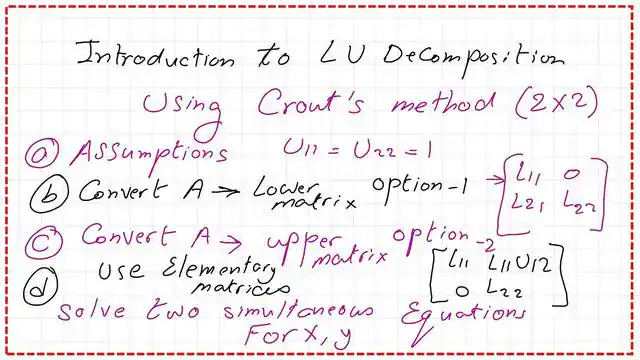 Introduction to LU Decomposition
Using Crout's method (2x2)
a Assumptions U11 = U22 = 1
b Convert A → Lower matrix option-1 → [L11 0
L21 L22]
c Convert A → upper matrix option-2
d Use Elementary matrices [L11 L11U12
0 L22]
Solve two simultaneous Equations
For x, y